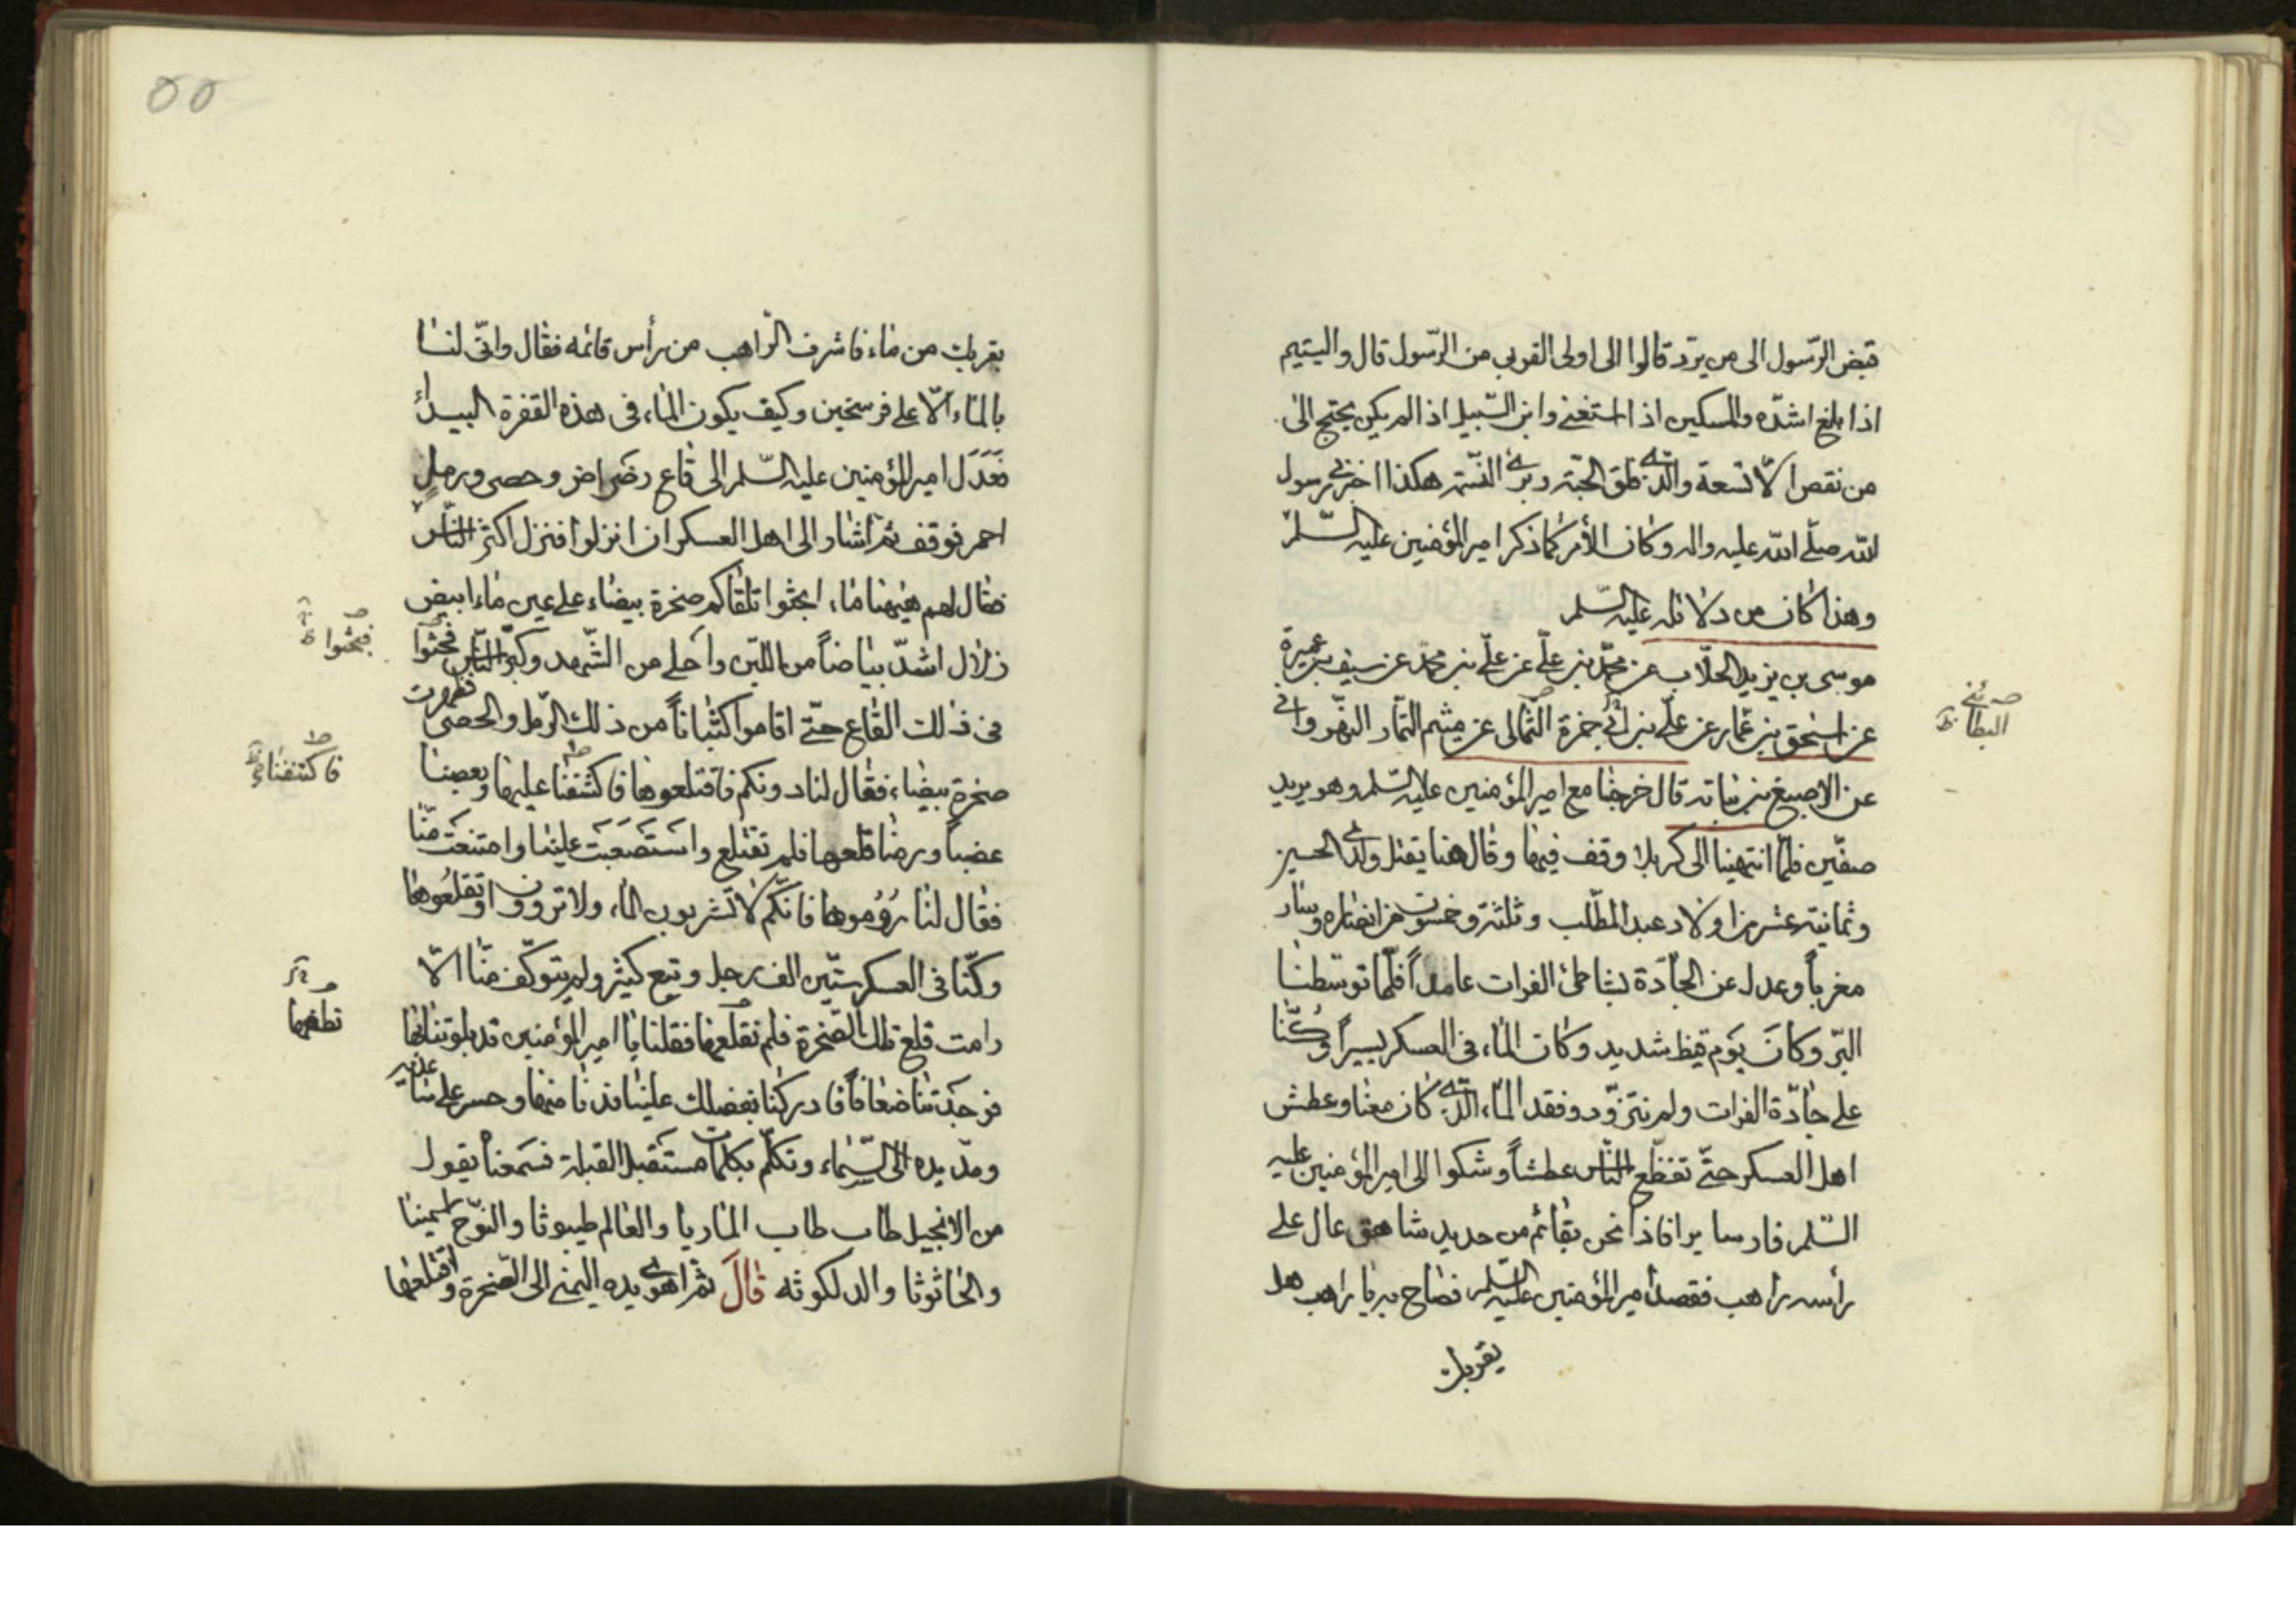 قبض الرّسول الى من يردّ قالوا الى اولى القربى من الرّسول قال واليتيم
اذا بلغ اشدّه والمسكين اذا استغنى وابن السّبيل اذا لم يكن يحتج الى
من نقص الّا تسعة والّذى فلق الحبّة وبرئ النّسمة هكذا اخبرنى رسول
الله صلّى الله عليه واله وكان الأمر كما ذكر امير المؤمنين عليه السّلم
وهذا كان من دلائله عليه السّلم
موسى بن يزيد الحلّاب عن محمّد بن علّى عن علّى بن محمّد عن سيف بن عميرة
عن اسحٰق بن عمّار عن علّى بن ابى حمزة الثّمالى عن ميثم التمّار النهّروانى
البطائنى ظ
عن الاصبغ بن نباته قال خرجنا مع امير المؤمنين عليه السّلم وهو يريد
صفّين فلمّا انتهينا الى كربلا وقف فيها وقال هنا يقتل ولدى الحسين
وثمانية عشر من اولاد عبد المطّلب وثلثة وخمسون من انصاره وسار
مغرباً وعدل عن الجادّة بشاطئ الفرات عامداً فلمّا توسّطنا
البّر وكانَ يَوم قيظ شديد وكان الماء فى العسكر يسيراً وَكُنّا
على جادّة الفرات ولم نتزوّد وفقد الماء الّذى كان معنا وعطش
اهل العسكر حتّى تقطّع النّاس عطشاً وشكوا الى امير المؤمنين عليه
السّلم فارسا يرا فاذا نحن بقائم من حديد شاهق عال على
رأسه راهب فقصد امير المؤمنين عليه السّلم فصاح به يا راهب هل
يقربك
٥٥
بقربك من ماء فاشرف الرّاهب من رأس قائمه فقال وانّى لنا
بالماء الّا على فرسخين وكيف يكون الماء فى هذه القفرة البيداء
فَعَدَل امير المؤمنين عليه السّلم الى قاع رضراض وحصى ورمل
احمر فوقف ثمّ اشار الى اهل العسكر ان انزلوا فنزل اكثر النّاس
فقال لهم هيٰهنا ماء ابحثوا تلقاكم صخرة بيضاء على عين ماء ابيض
زلال اشدّ بياضاً من اللبن وأحلى من الشّهد وكبّر النّاس فحثوا
فبحثوا ظ
فى ذلك القاع حتّى اقاموا كثباناً من ذلك الرّمل والحصى فظهرت
صخرة بيضاء فقال لنا دونكم فاقتلعوها فاكشفنا عليها وبعصنا
فاكتنفناء ظ
عضباً ورمنا قلعها فلم تقتلع واستَصعَبَت علينا وامتنعَت منّا
فقال لنا رُوُموها فانّكم لا تشربون الماء ولا تروون او تقلعُوها
وكنّا فى العسكر ستّين الف رجل وتبع كثير ولم يتوكّف منّا الّا
رامت قلع تلك الصّخرة فلم نقلعها فقلنا يا امير المؤمنين قد بلوتنا بها
نطقها
فوجَدَتنا ضعافاً فادركنا بفضلك علينا فدنا منها وحسر على يديه
ومدّ يده الى السّماء وتكلّم بكلمات مستَقبل القبلة فسَمعناه يقول
من الانجيل طاب طاب الماريا والعالم طيبوثا والنوّح
والحاثوثا والدلكوثه قالَ ثمّ اهوى يده اليمنى الى الصّخرة واقتلعها